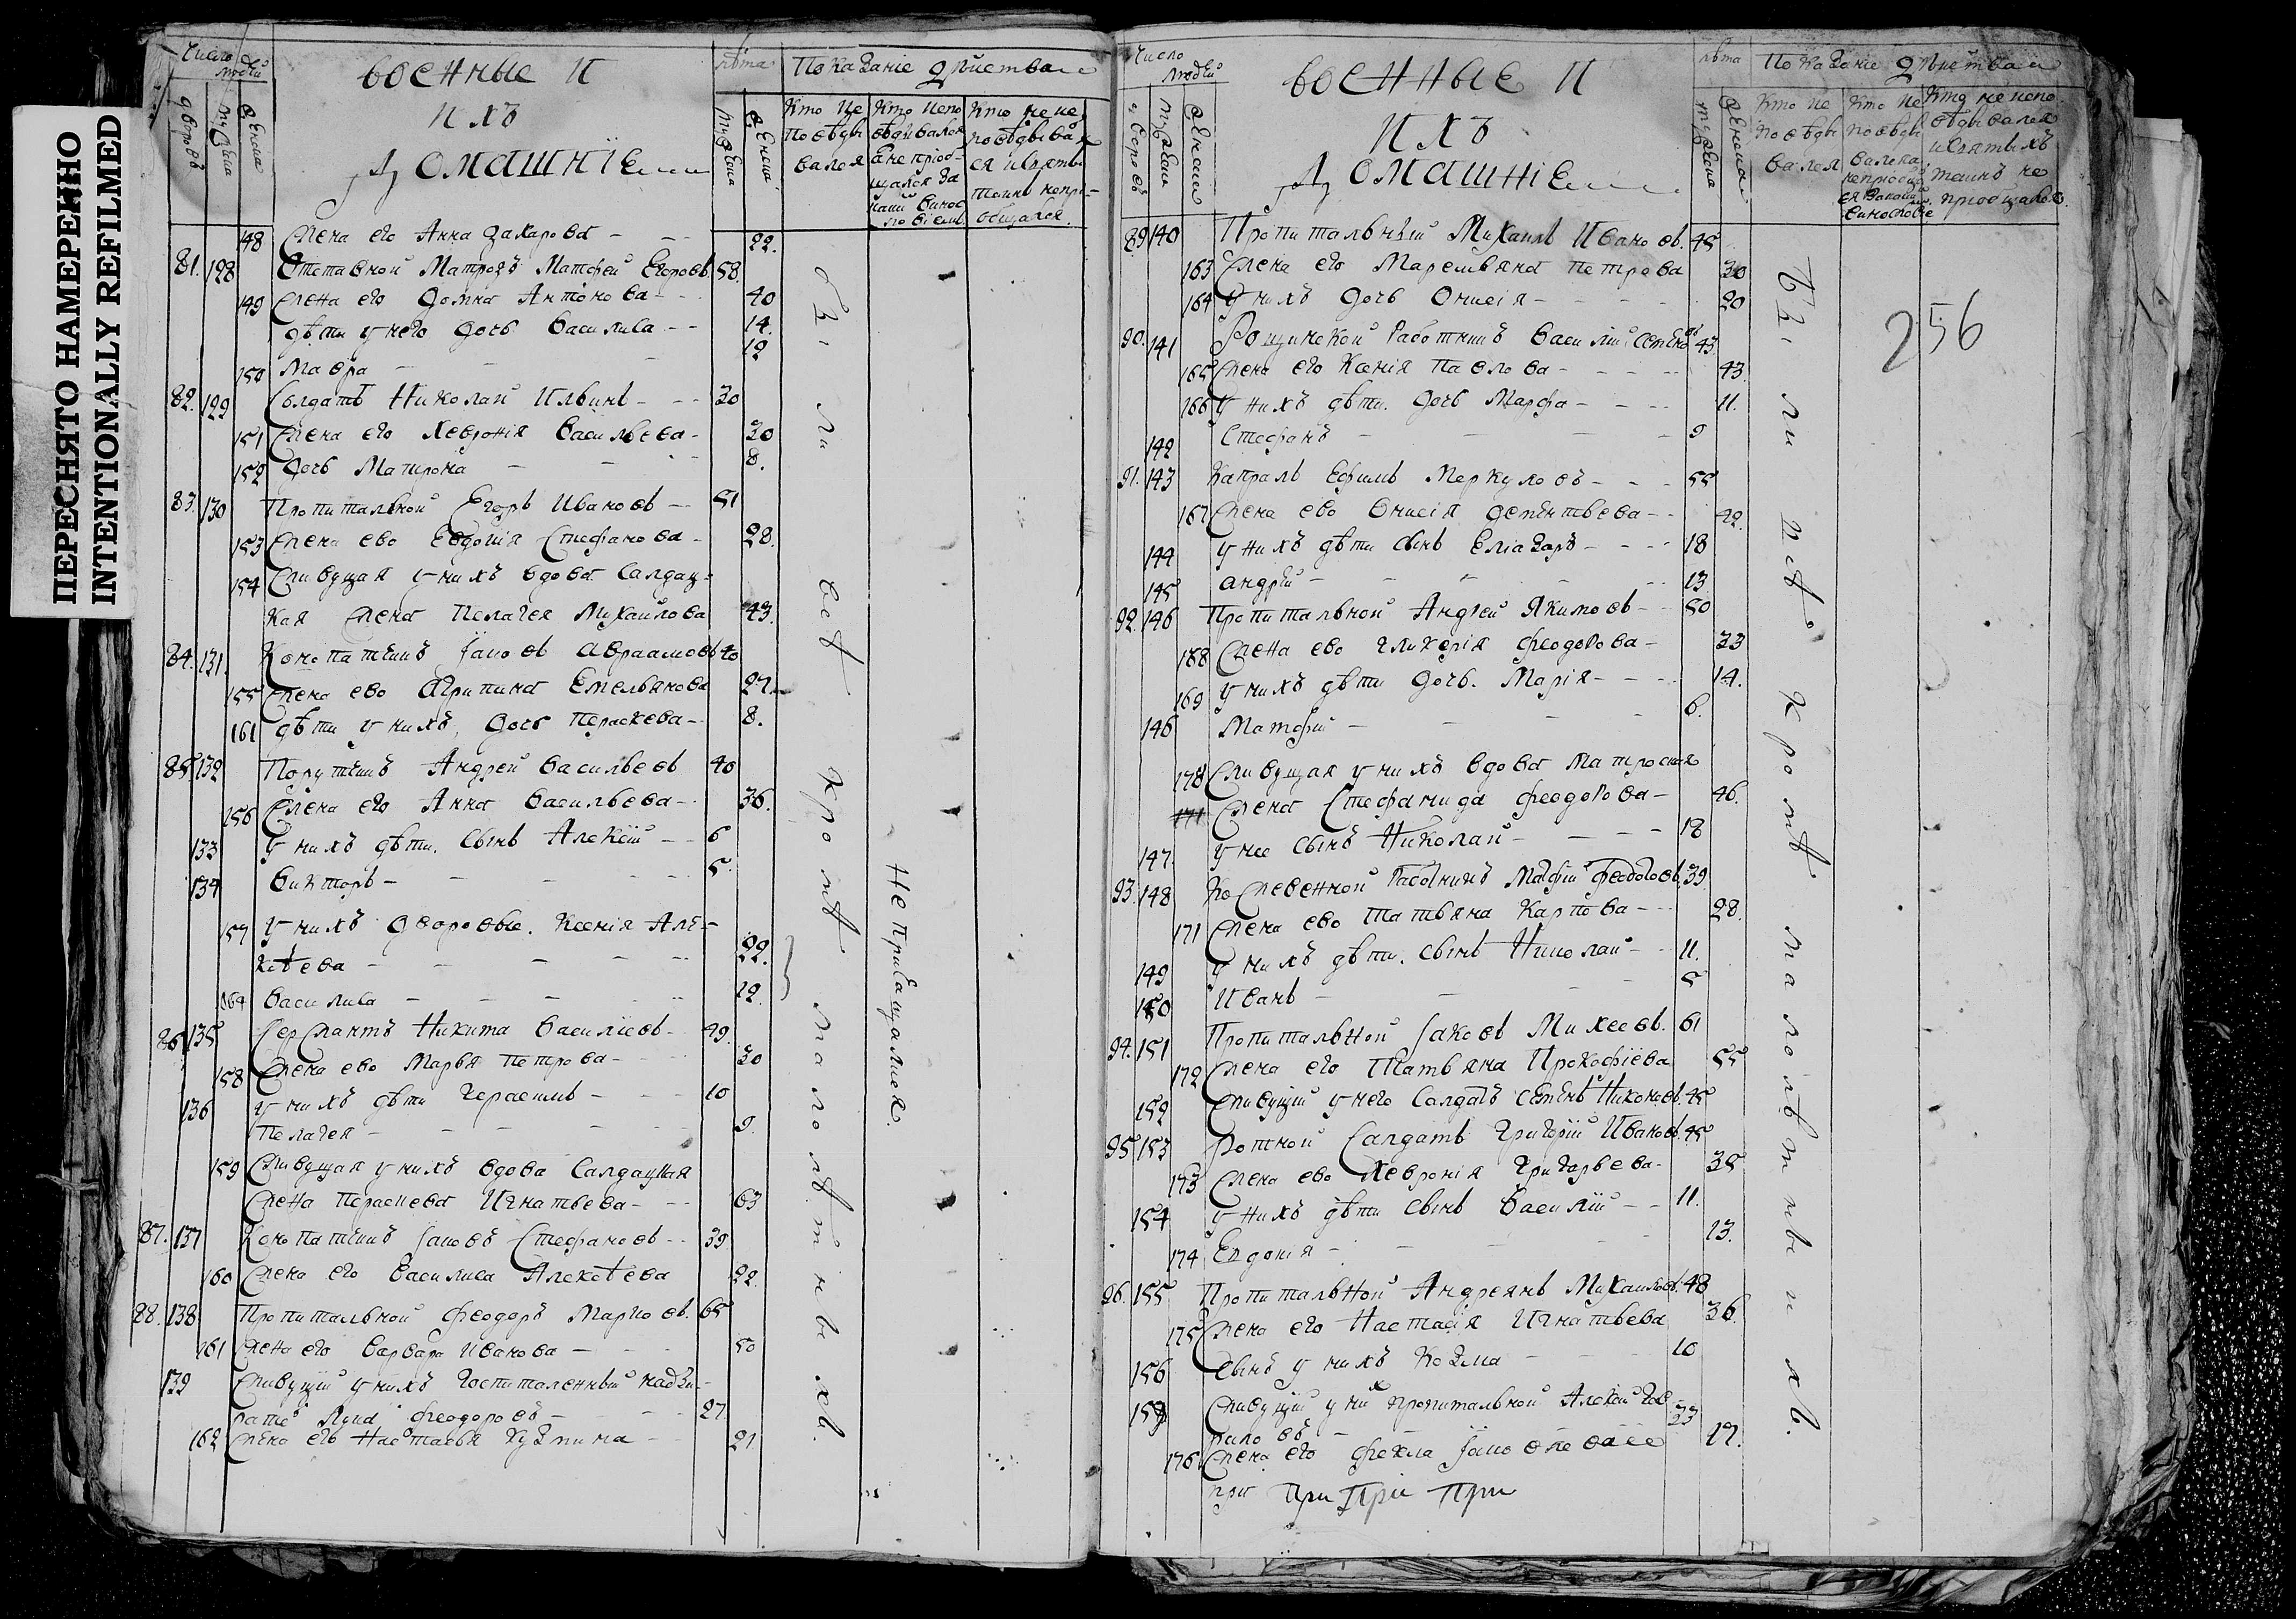 ПЕРЕСНЯТО НАМЕРЕННО
INTENTIONALLY REFILMED
Число людей
дворовъ
мужеска
женска
военные и
ихъ
Домашніе
лѣта
мужеска
женска
Показаніе дѣйства
Кто исповѣдывался
148 Жена его Анна Захарова - - 22.
81. 128 Отставной Матрозъ Матфей Егоровъ 58.
149 Жена его Домна Антонова - - 40
дѣти у него дочь Василиса - - 14.
150 Мавра - - - 12
82. 129 Солдатъ Николай Ильинъ - - 30
151 Жена его Хевронія Васильева - 30
152 дочь Матрона - - - 8.
83. 130 Пропитальной Егоръ Ивановъ - - 51
153 Жена ево Евдокія Стефанова - 28.
154 Живущая у нихъ вдова Салдац-
кая Жена Пелагея Михаилова 43.
84. 131. Конопатчикъ Іаковъ Авраамовъ 40
155 Жена ево Агрипина Емельянова 27.
161 дѣти у нихъ, дочь Параскева - 8.
85 132 Порутчикъ Андрей Васильевъ 40
156 Жена его Анна Васильева - 36.
133 у нихъ дѣти. сынъ Алексій - - 6
134 Викторъ - - - - 5.
157 у нихъ дворовые. Ксенія Алѣ-
ксѣева - - - - 22.
164 Василиса - - - - 12.
86 135 Сержантъ Никита Василіевъ - 49.
158 Жена ево Марья Петрова - - 30
136 у нихъ дѣти Герасимъ - - - 10
Пелагея - - - - 9.
159 Живущая у нихъ вдова Салдацкая
Жена Параскева Игнатьева - - 63
87. 137 Конопатчикъ Іаковъ Стефановъ - - 39
160 Жена его Василиса Алексѣева 22.
88. 138 Пропитальной Феодоръ Марковъ. 65
161 Жена его Варвара Иванова - - 50
139 Живущій у нихъ Госпиталенный надзи-
ратѣ Феодоровъ - - - 27
162 Жена его Настасья Кузмина - - 21
были всѣ кромѣ малолѣтныхъ.
Не прибщались.
Число людей
дворовъ
мужеска
женска
военные и
ихъ
Домашніе
лѣта
мужеска
женска
Показаніе дѣйства
Кто исповѣдывался
89 140 Пропитальный Михаилъ Ивановъ. 45
163 Жена его Маремьяна Петрова 30
164 у нихъ дочь Онисія - - - - 20
90. 141 Рощинской Работникъ Василій Семеновъ 43.
165 Жена его Ксенія Павлова - - - - 43
166 у нихъ дѣти. дочь Марфа - - - - 11.
142 Стефанъ - - - - 9
91. 143 Капралъ Ефимъ Меркуловъ - - - 55
167 Жена ево Онисія Дементьева - - 42.
144 у нихъ дѣти сынъ Еліазаръ - - - - 18
145 андрѣй - - - - 13
92. 146 Пропитальной Андрей Якимовъ - - 50
188 Жена ево Гликерія Феодорова - 33
169 у нихъ дѣти дочь. Марія - - - 14.
146 Матфій - - - - 6.
178 Живущая у нихъ вдова Матроская
171 Жена Стефанида Феодорова - 46.
147. у нее сынъ Николай - - - - 18
93. 148 Кожевенной Работникъ Матфій Феодоровъ. 39
171 Жена ево Татьяна Карпова - - 28.
149 у нихъ дѣти. сынъ Николай - - 11.
150 Иванъ - - - - 5
94. 151 Пропитальной Іаковъ Михеевъ. 61
172 Жена его Татьяна Прокофіева 55
152 Живущій у него Салдатъ Семенъ Никоновъ. 45
95 153 Ротной Салдатъ Григорій Ивановъ. 45
173 Жена ево Хевронія Григорьева - 35
154 у нихъ дѣти сынъ Василій - - 11.
174 Евдокія - - - - 13.
96. 155 Пропитальной Андреянъ Михаиловъ. 48
175 Жена его Настасія Игнатьева 36.
156 сынъ у нихъ Козма - - - 10
Живущій у них пропитальной Алексій
23
176 Жена его Фекла 17.
при при при при
Были всѣ кромѣ малолѣтныхъ.
256